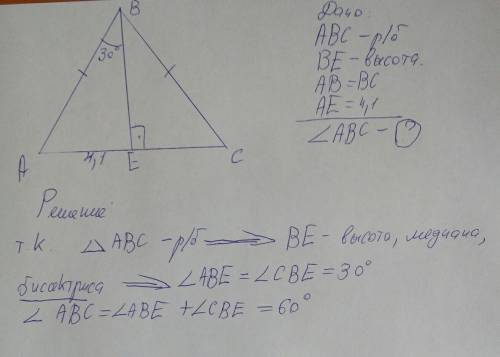 B
30°
A
4,1
E
C
Дано:
ABC - р/б
BE - высота.
AB = BC
AE = 4,1
∠ABC - ?
Решение:
т.к. △ ABC - р/б ⟹ BE - высота, медиана,
биссектриса ⟹ ∠ABE = ∠CBE = 30°
∠ ABC = ∠ABE + ∠CBE = 60°